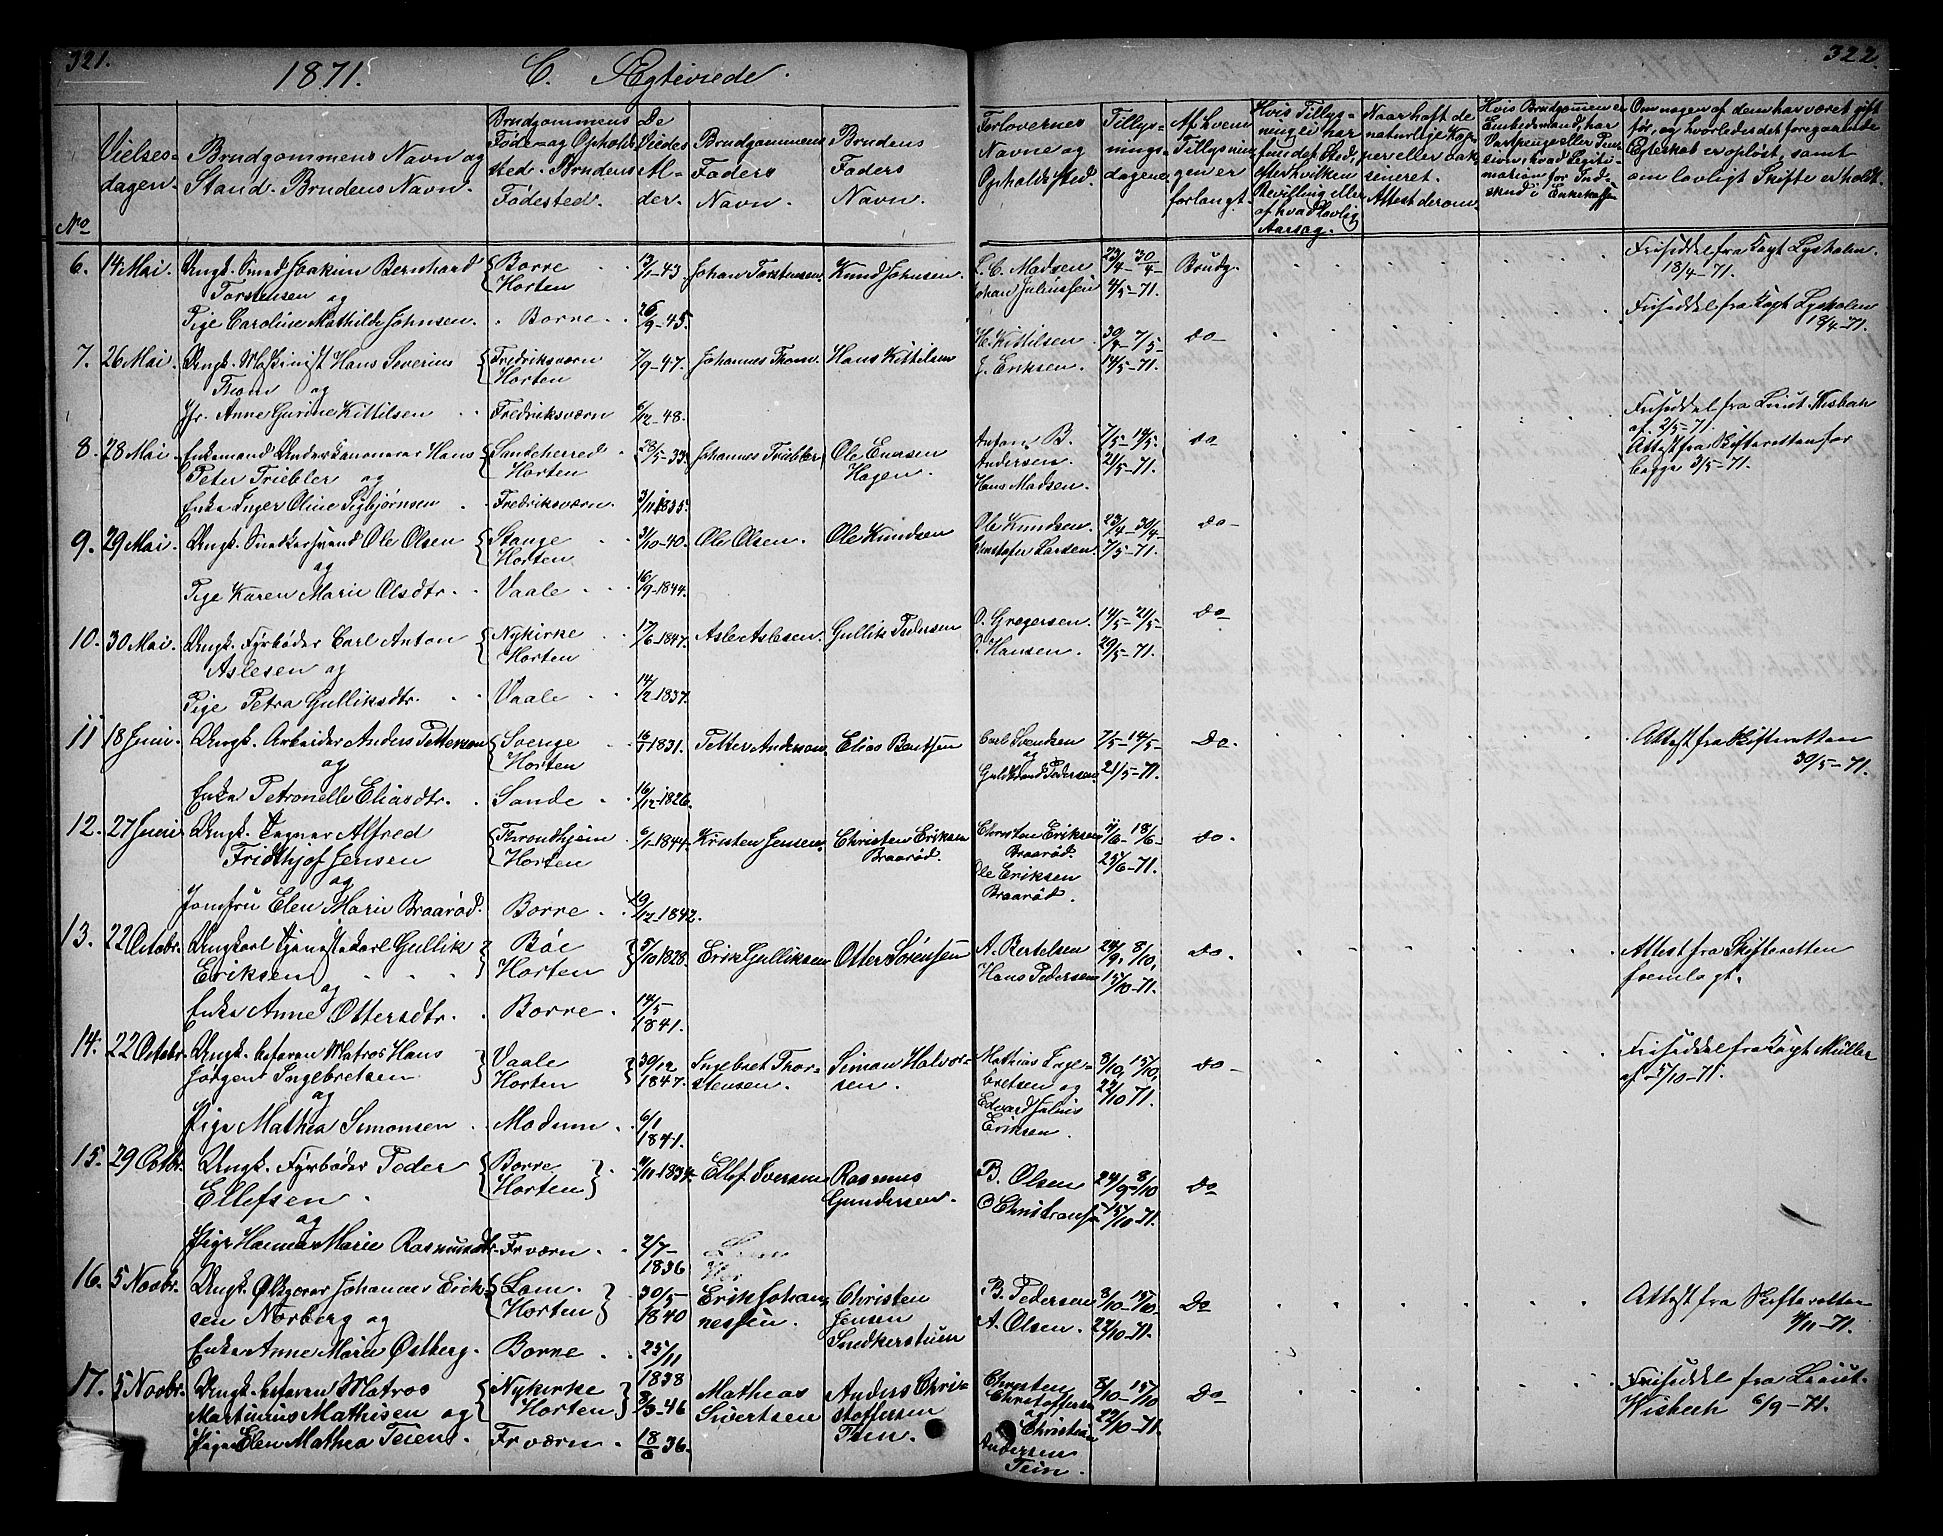 321.
1871.
C. Ægteviede.
322.
No
Vielses-
dagen.
Brudgommens Navn og
Stand. Brudens Navn.
Brudgommens
Føde- og Opholds
sted. Brudens
Fødested.
De
Viedes
Al-
der.
Brudgommens
Faders
Navn.
Brudens
Faders
Navn.
Forlovernes
Navne og
Opholdssted.
Tillys-
nings-
dagene.
Af hvem
Tillysnin
gen er
forlangt.
Hvis Tillys-
ning ei har
fundet Sted,
efter hvilken
Bevilling eller
af hvad lovlig
Aarsag.
Naar haft de
naturlige Kop-
per eller vak-
sineret.
Attest derom.
Hvis Brudgommen er
Embedsmand, har
Vartpenge eller Pen-
sion, hvad Legiti-
mation for Ind-
skud i Enkekassen
Om nogen af dem har været gift
før, og hvorledes det foregaaende
Egteskab er opløst, samt
om lovligt Skifte er holdt.
6. 14 Mai. Ungk. Smed Joakim Bernhard
Torstensen og
Pige Caroline Mathilde Johnsen.
Borre
Horten
Borre
13/1-43.
26/9-45.
Johan Torstensen.
Knud Johnsen.
L. C. Madsen
Johan Juliussen
23/4- 30/4-
4/5-71.
Brudg.
Friseddel fra Kapt Lysholm.
18/4-71.
Friseddel fra Kapt Lysholm
18/4-71.
7. 26 Mai. Ungk. Maskinist Hans Severius
Thom og
Jfr. Anne Gurine Kittilsen
Fredriksværn
Horten
Fredriksværn
7/9-47.
6/12-48.
Johannes Thom.
Hans Kittilsen
H. Kittilsen
J. Eriksen.
30/4- 7/5-
14/5-71.
do
8. 28 Mai. Enkemand Underkanonerer Hans
Peter Triebler og
Enke Inger Oline Sigbjørnsen
Sandeherred
Horten
Fredriksværn.
28/5-33.
3/11 1835.
Johannes Triebler
Ole Enersen
Hagen.
Anton B.
Andersen.
Hans Madsen.
7/5-14/5.
21/5-71.
do
Friseddel fra Lieut. Wisbech
af. 2/5-71.
Attest fra Skifteretten for
begge 3/5-71.
9. 29 Mai. Ungk. Snedkersvend Ole Olsen
og
Pige Karen Marie Olsdtr.
Stange
Horten
Vaale
3/10-40.
16/9-1844.
Ole Olsen.
Ole Knudsen
Ole Knudsen.
Kristofer Larsen
23/4-30/4-
7/5-71.
do
10. 30 Mai. Ungk. Fyrbøder Carl Anton
Aslesen og
Pige Petra Gulliksdtr.
Nykirke
Horten
Vaale
17/6-1847.
14/2-1837.
Asle Aslesen.
Gullik Pedersen
O. Gregersen.
O. Hansen.
14/5-21/5-
29/5-71.
do
11 18 Juni. Ungk. Arbeider Anders Pettersen
og
Enke Petronelle Eliasdtr.
Sverige
Horten
Sande
1831.
16/12-1826.
Petter Andersen.
Elias Bentsen
Carl Svendsen
og
Guldbrand Pedersen.
7/5-14/5-
21/5-71.
Do.
Attest fra Skifteretten
30/5-71.
12. 27 Juni Ungk. Tegner Alfred
Fridthjof Jensen
og
Jomfru Elen Marie Braarød.
Throndhjem
Horten
Borre
6/1-1844.
19/12-1842.
Kristen Jensen.
Christen Eriksen
Braarød.
Christen Eriksen
Braarød.
Ole Eriksen
Braarød.
11/6- 18/6-
25/6-71.
do.
13. 22 Octobr. Ungkarl Tjenestekarl Gullik
Eriksen
og
Enke Anne Ottersdtr.
Bøe
Horten
Borre
5/10 1828.
14/5-
1841.
Erik Gulliksen
Otter Sørensen
A. Bertelsen
Hans Pedersen
24/9, 8/10,
15/10-71.
do.
Attest fra Skifteretten
fremlagt.
14. 22 Octobr. Ungk. befaren Matros Hans
Jørgen Ingebretsen
og
Pige Mathea Simonsen
Vaale
Horten
Modum
30/12
1847.
6/1
1841.
Ingebret Thor-
stensen.
Simon Halvor-
sen.
Mathias Inge-
bretsen og
Edvard Julius
Eriksen.
8/10, 15/10,
22/10 71.
do
Friseddel fra Kapt Müller
af 5/10-71.
15. 29 Octbr. Ungk. Fyrbøder Peder
Ellefsen
og
Pige Hanna Marie Rasmusdtr.
Borre
Horten
Frværn
1834.
2/7-
1836
Ellef Iversen
Rasmus
Gundersen.
B. Olsen
C Christiansen
24/9-8/10
15/10-71.
do
16. 5 Novbr. Ungk. Øltapper Johannes Erik-
sen Norberg og
Enke Anne Marie Østberg.
Lom.
Horten
Borre
30/5-
1840
25/11
1838
Erik Johan-
nessen.
Christen
Jensen
Snekkerstuen
B. Pedersen
A. Olsen.
8/10-15/10
22/10-71.
Do
Attest fra Skifteretten
4/11-71.
17. 5 Novbr. Ungk. befaren Matros
Martinius Mathisen og
Pige Elen Mathea Teiens.
Nykirke
Horten
Frværn
8/3-46
18/6 36.
Matheas
Sivertsen
Anders Chri-
stoffersen
Tein.
Christen
Christoffersen
og Christian
Andersen
Tein.
8/10-15/10
22/10-71.
Do
Friseddel fra Lieut.
Wisbech 6/9-71.